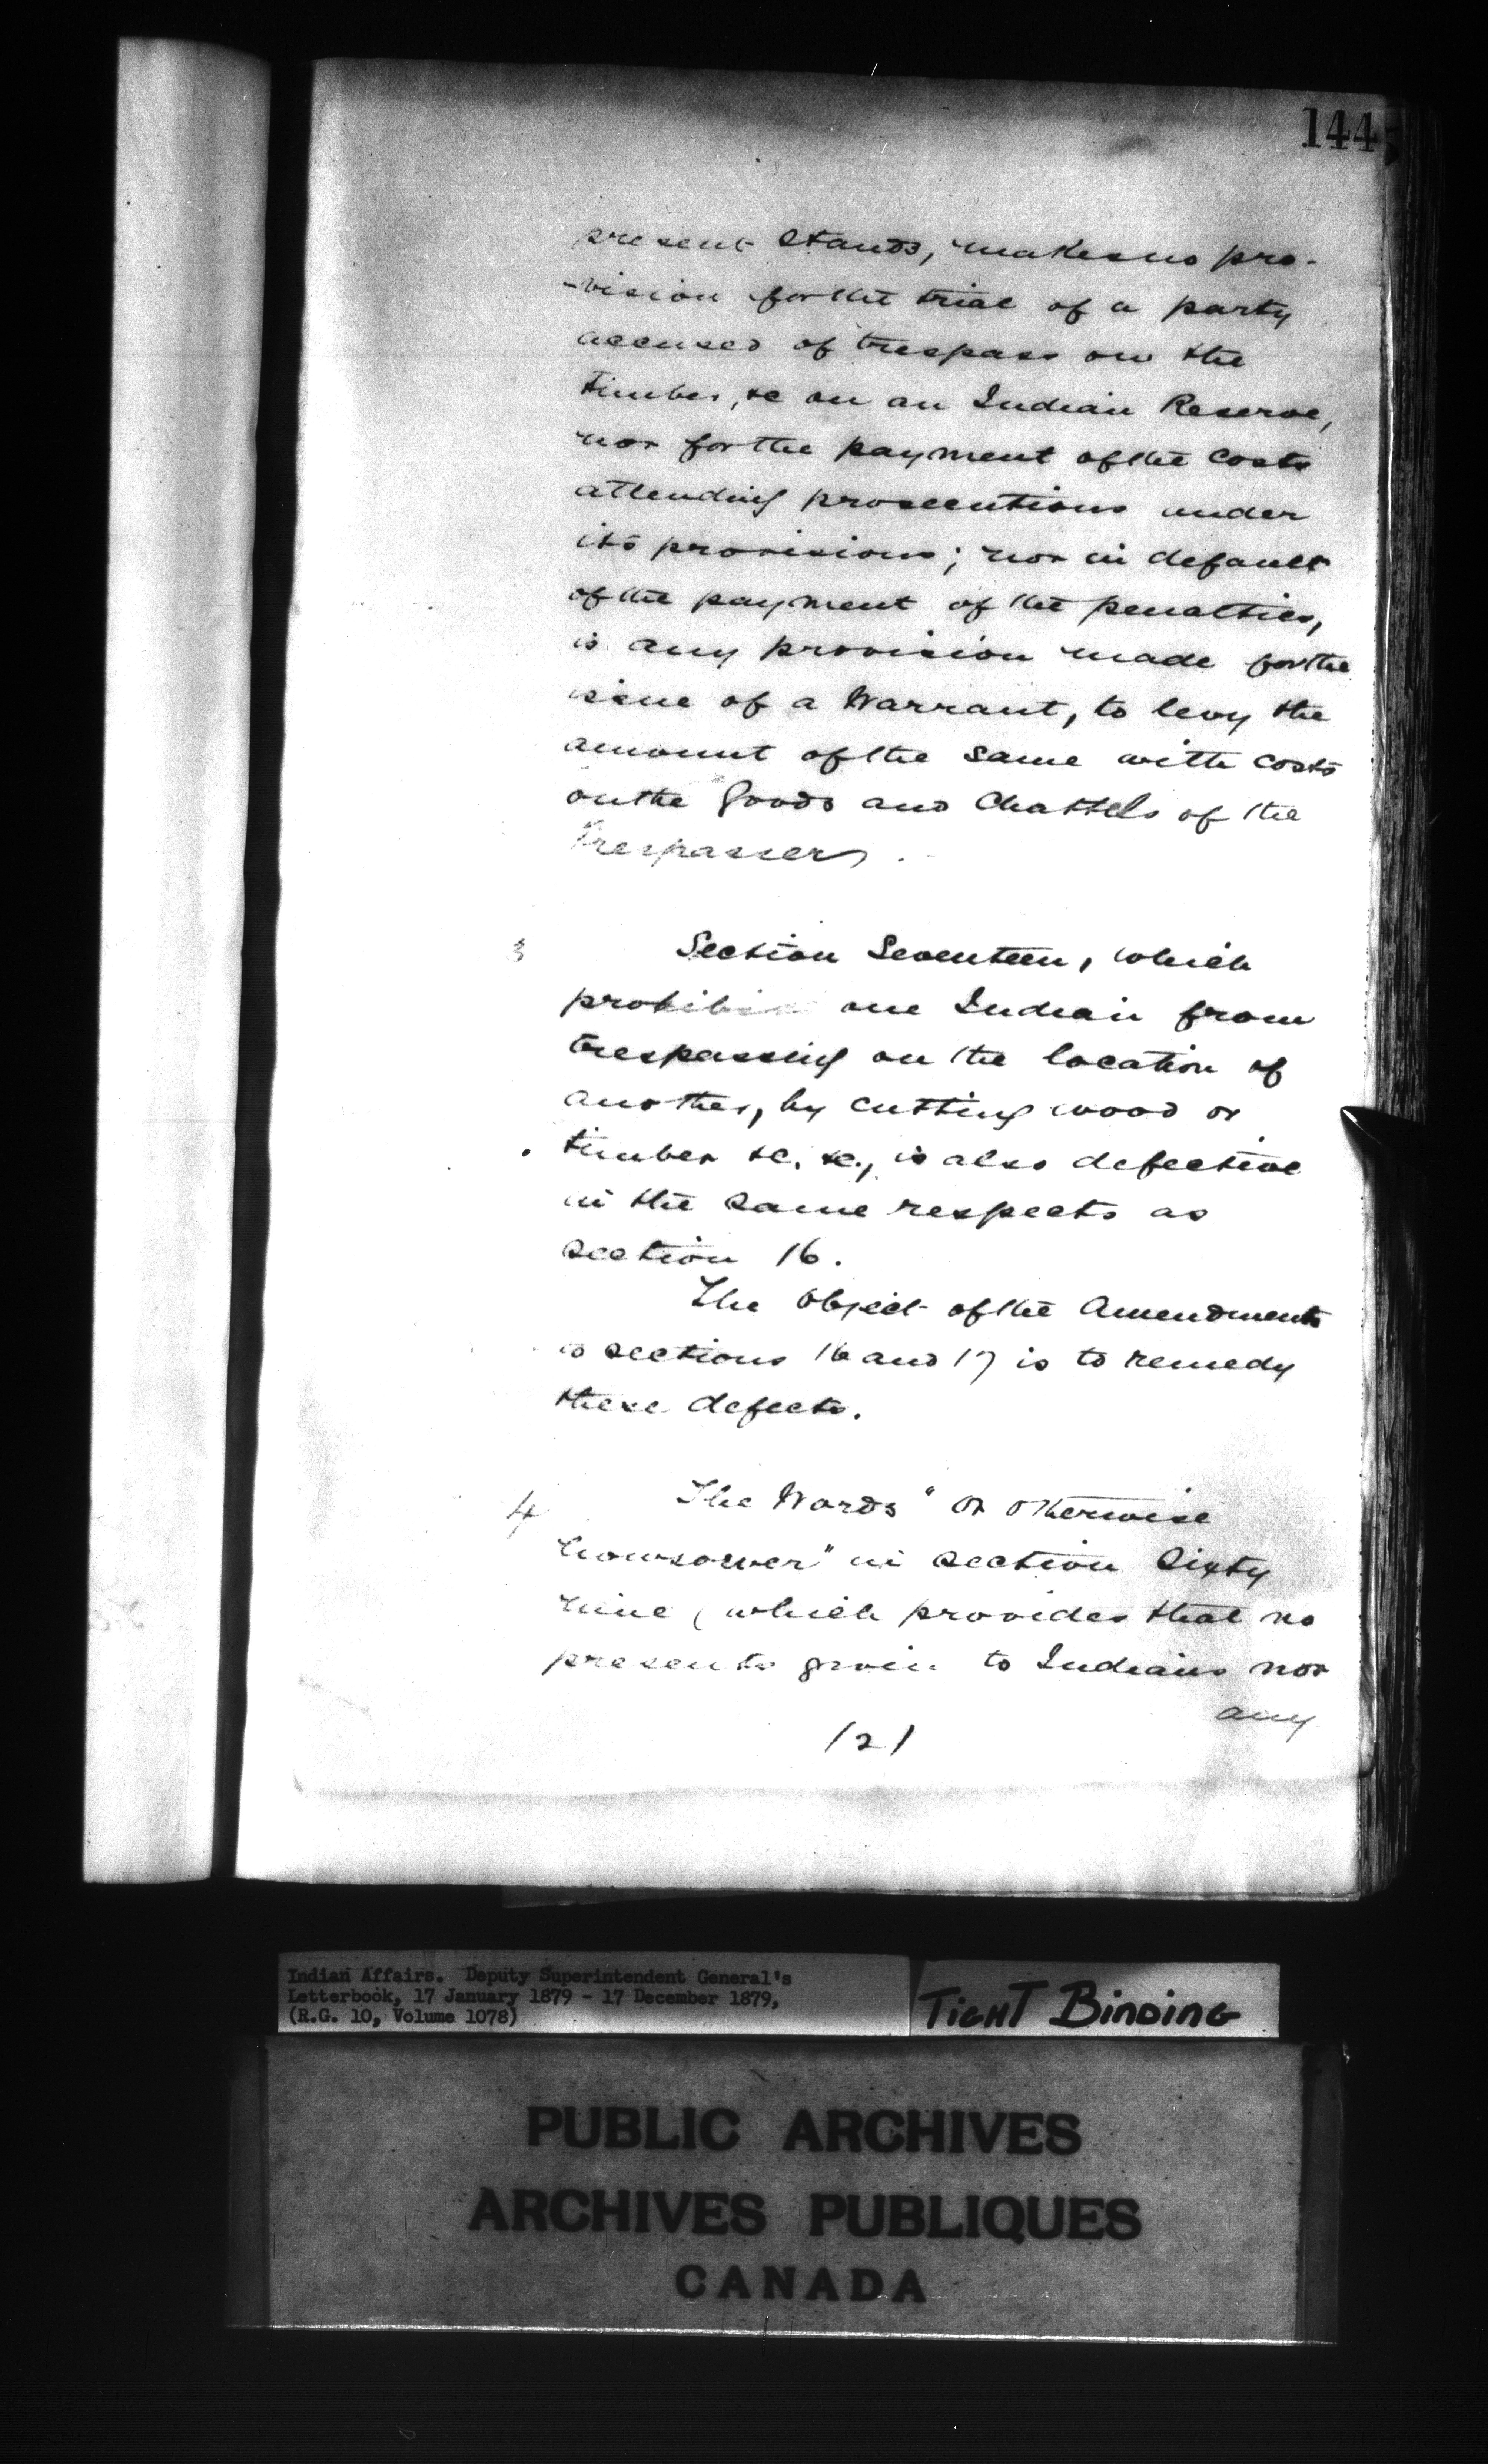 144
present stands, makes no pro-
-vision for the trial of a party
accused of trespass on the
timber, &c on an Indian Reserve,
nor for the payment of the costs
attending prosecutions under
its provisions; nor in default
of the payment of the penalties,
is any provision made for the
issue of a Warrant, to levy the
amount of the same with costs
on the Goods and Chattels of the
Trespassers.
3 Section Seventeen, which
prohibits one Indian from
trespassing on the location of
another, by cutting wood or
timber &c. &c., is also defective
in the same respects as
section 16.
The Object of the Amendments
to sections 16 and 17 is to remedy
these defects.
4 The Words "or otherwise
howsoever" in section Sixty
nine (which provides that no
presents given to Indians nor
any
/2/
Indian Affairs. Deputy Superintendent General's
Letterbook, 17 January 1879 - 17 December 1879,
(R.G. 10, Volume 1078)
TIGHT BINDING
PUBLIC ARCHIVES
ARCHIVES PUBLIQUES
CANADA